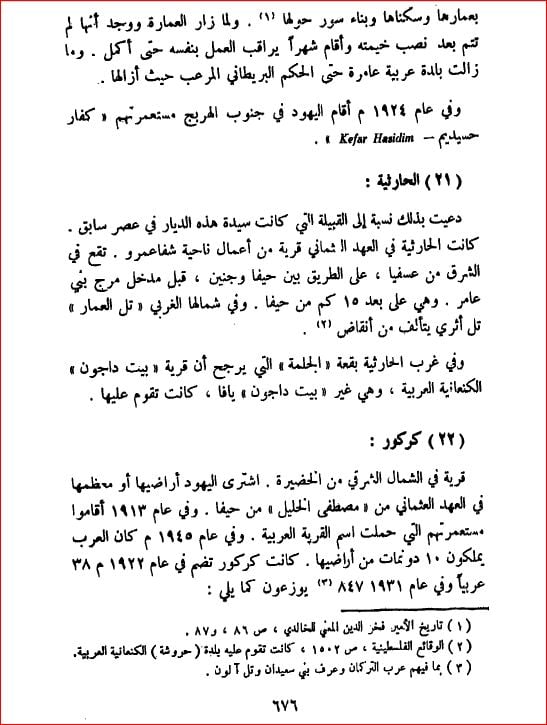 بعمارها وسكناها وبناء سور حولها (١) . ولما زار العمارة ووجد أنها لم
تتم بعد نصب خيمته وأقام شهراً يراقب العمل بنفسه حتى أكمل . وما
زالت بلدة عربية عامرة حتى الحكم البريطاني المرعب حيث أزالها .
وفي عام ١٩٢٤ م أقام اليهود في جنوب الهربج مستعمرتهم « كفار
حسيديم – Kefar Hasidim » .
(٢١) الحارثية :
دعيت بذلك نسبة إلى القبيلة التي كانت سيدة هذه الديار في عصر سابق .
كانت الحارثية في العهد العثماني قرية من أعمال ناحية شفاعمرو . تقع في
الشرق من عسفيا ، على الطريق بين حيفا وجنين ، قبل مدخل مرج بني
عامر . وهي على بعد ١٥ كم من حيفا . وفي شمالها الغربي « تل العمار »
تل أثري يتألف من أنقاض (٢) .
وفي غرب الحارثية بقعة « الجلمة » التي يرجح أن قرية « بيت داجون »
الكنعانية العربية ، وهي غير « بيت داجون » يافا ، كانت تقوم عليها .
(٢٢) كركور :
قرية في الشمال الشرقي من الخضيرة . اشترى اليهود أراضيها أو معظمها
في العهد العثماني من « مصطفى الخليل » من حيفا . وفي عام ١٩١٣ أقاموا
مستعمرتهم التي حملت اسم القرية العربية . وفي عام ١٩٤٥ م كان العرب
يملكون ١٠ دونمات من أراضيها . كانت كركور تضم في عام ١٩٢٢ م ٣٨
عربياً وفي عام ١٩٣١ ٨٤٧ (٣) يوزعون كما يلي :
(١) تاريخ الأمير فخر الدين المعني للخالدي ، ص ٨٦ ، و٨٧ .
(٢) الوقائع الفلسطينية ، ص ١٥٠٢ ، كانت تقوم عليه بلدة (حروشة) الكنعانية العربية.
(٣) بما فيهم عرب التركمان وعرف بني سعيدان وتل آلون .
٦٧٦